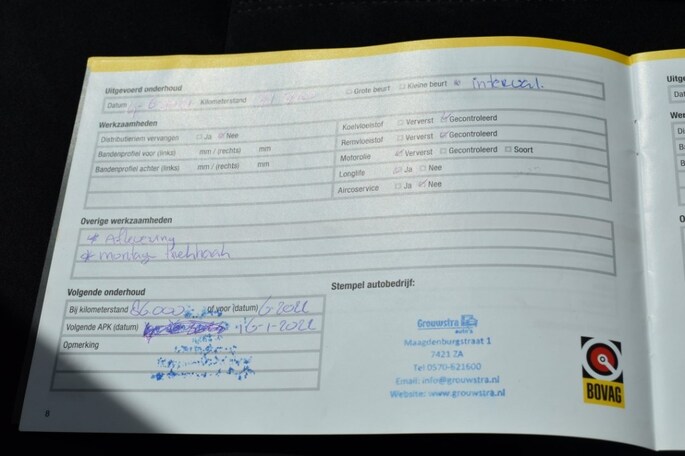 Uitgevoerd onderhoud
Datum Kilometerstand
Grote beurt Kleine beurt interval.
Werkzaamheden
Distributieriem vervangen Ja Nee
Bandenprofiel voor (links) mm / (rechts) mm
Bandenprofiel achter (links) mm / (rechts) mm
Koelvloeistof Ververst Gecontroleerd
Remvloeistof Ververst Gecontroleerd
Motorolie Ververst Gecontroleerd Soort
Longlife Ja Nee
Aircoservice Ja Nee
Overige werkzaamheden
* Aflevering
* montage Trekhaak
Volgende onderhoud
Bij kilometerstand 86000 of voor (datum) 6-2022
Volgende APK (datum) 16-1-2022
Opmerking
Stempel autobedrijf:
Grouwstra
auto's
Maagdenburgstraat 1
7421 ZA
Tel 0570-621600
Email: info@grouwstra.nl
Website: www.grouwstra.nl
BOVAG
8